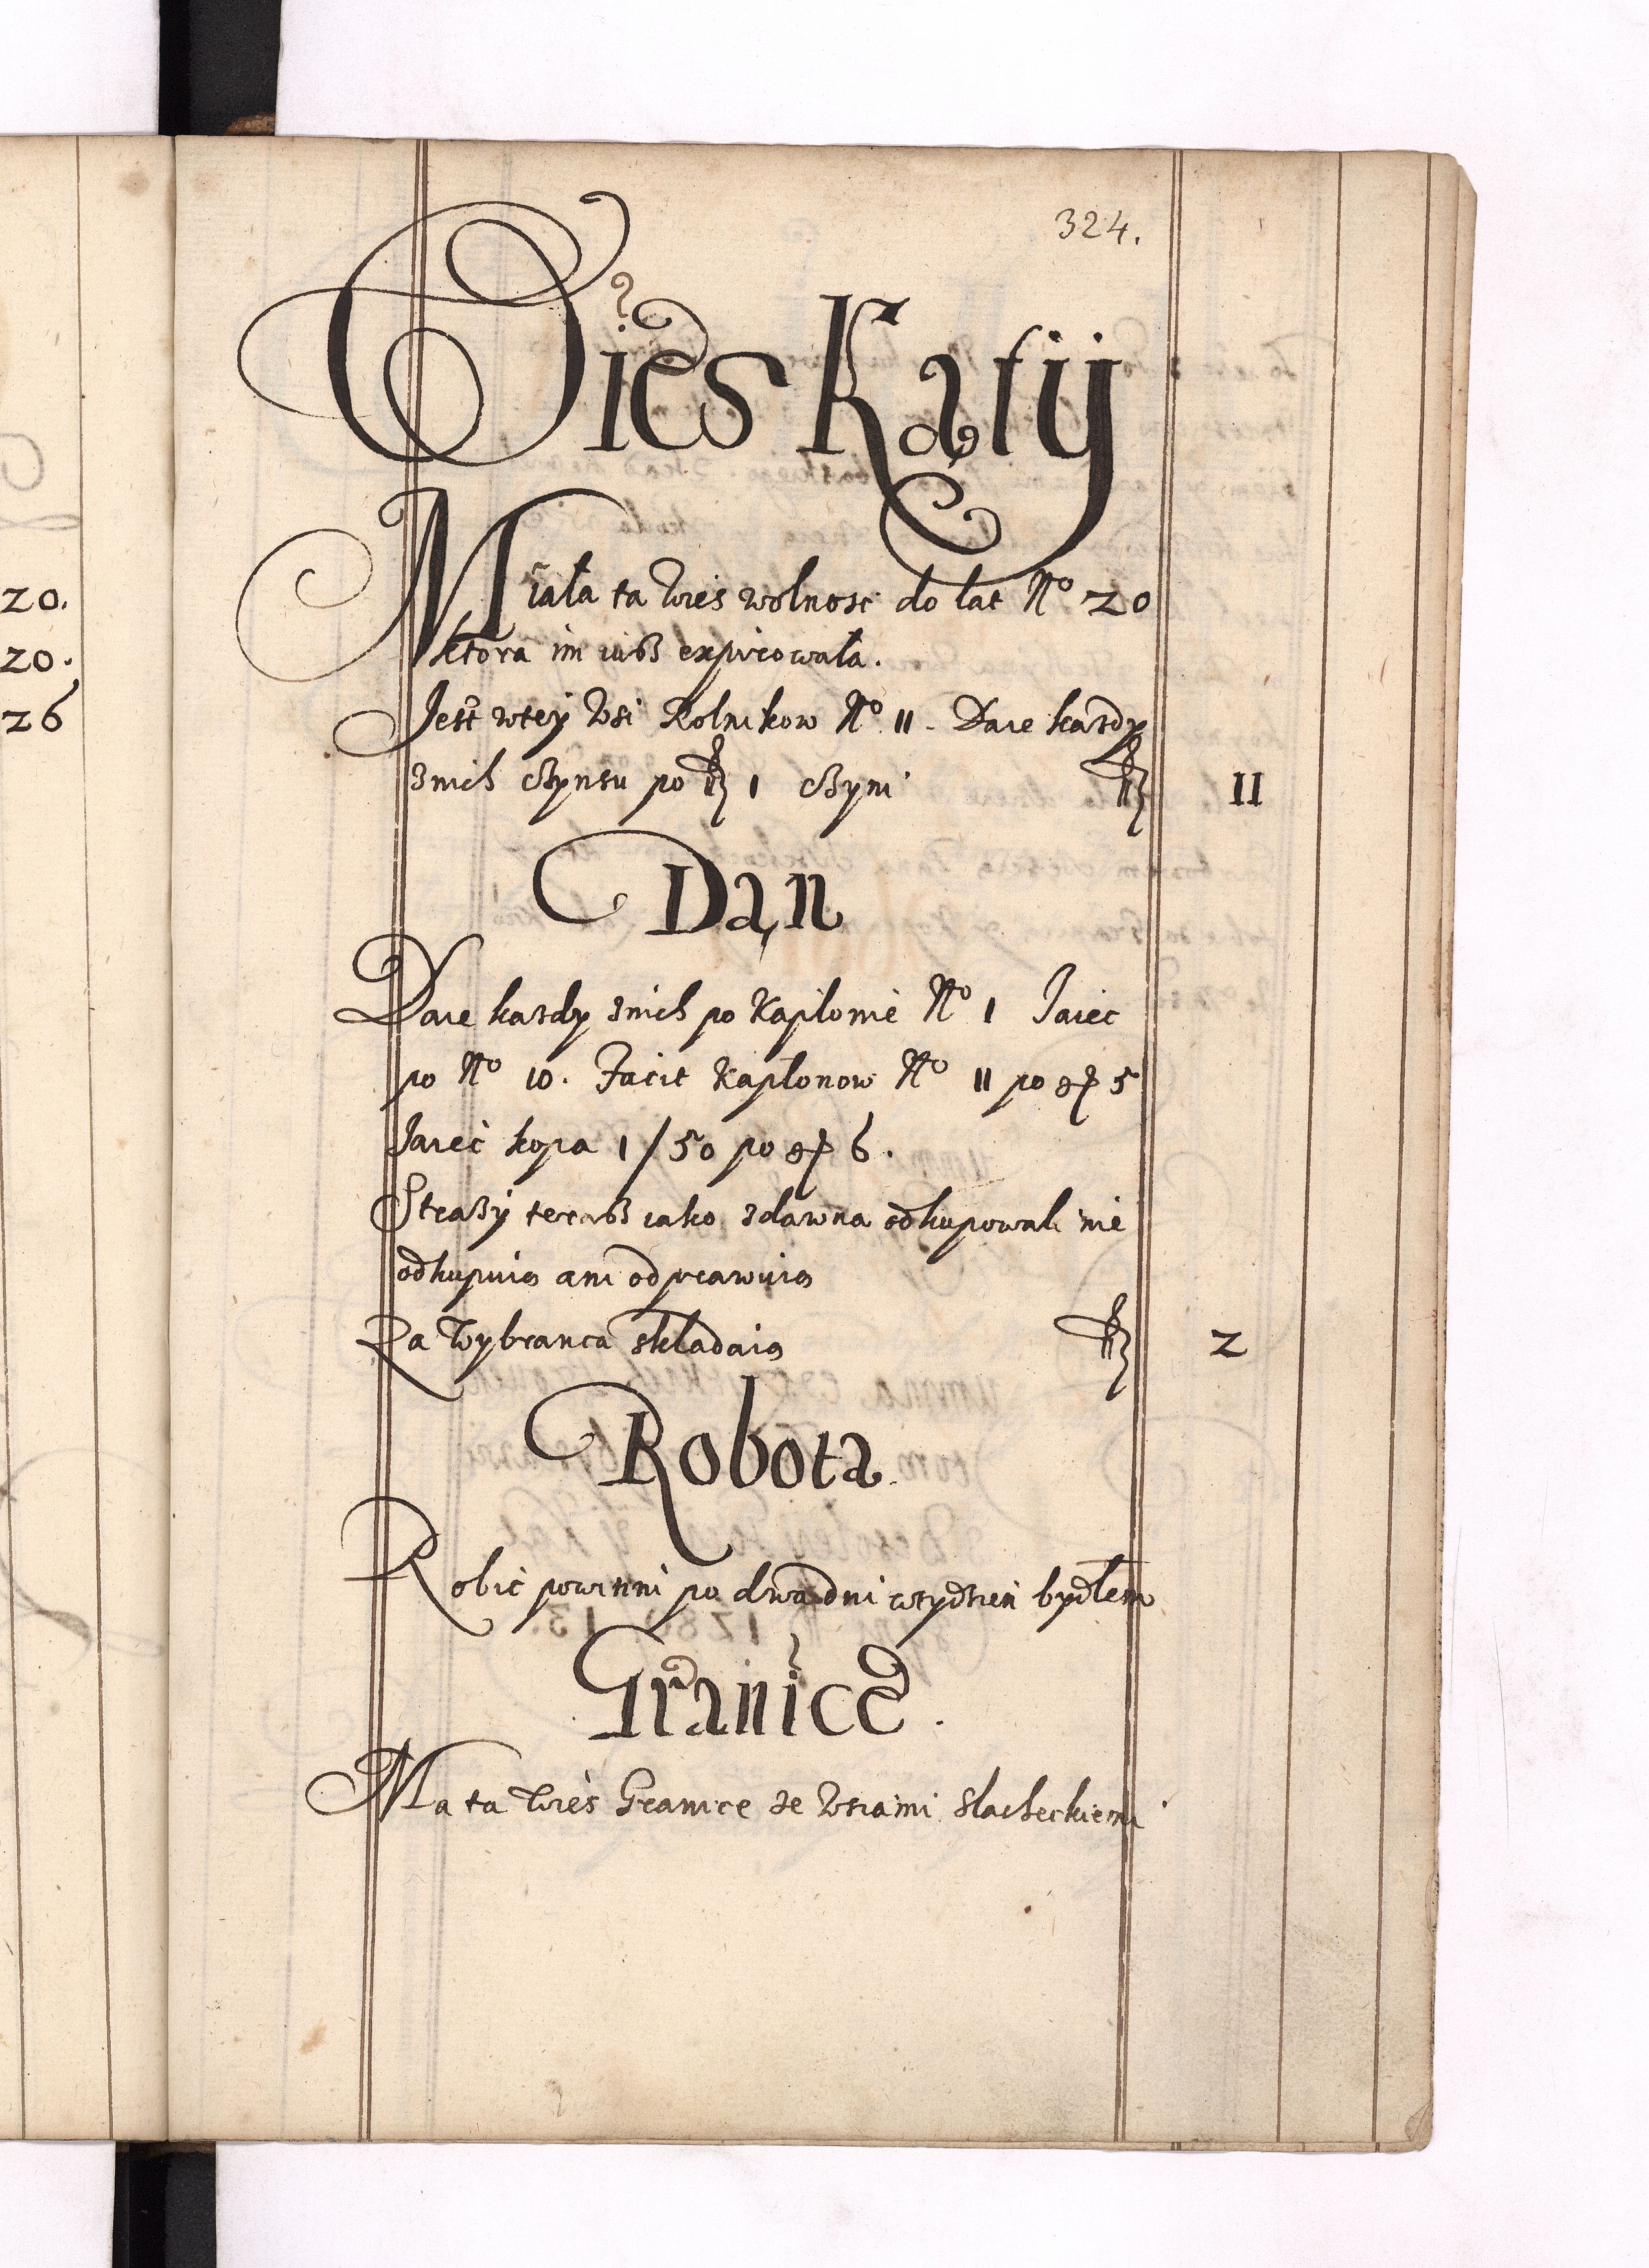 324.
Wies Kąty
Miała ta Wies wolnosc do lat No 20
ktora im iuß expirowała.
Jest wtey Wsi Rolnikow No 11. Daie kazdy
znich cżynszu po fl 1 cżyni fl 11
Dan
Daie kazdy znich po Kapłonie No 1 Jaiec
po No 10. Facit Kapłonow No 11 po gr 5
Jaiec kopa 1/50 po gr 6.
Straży teraß iako zdawna odkupowali nie
odkupuią ani odprawuią
Za Wybranca składaią fl 2
Robota
Robic powinni po dwa dni wtydzien bydłem
Granice.
Ma ta Wies Granice ze Wsiami slacheckiemi
20.
20.
26